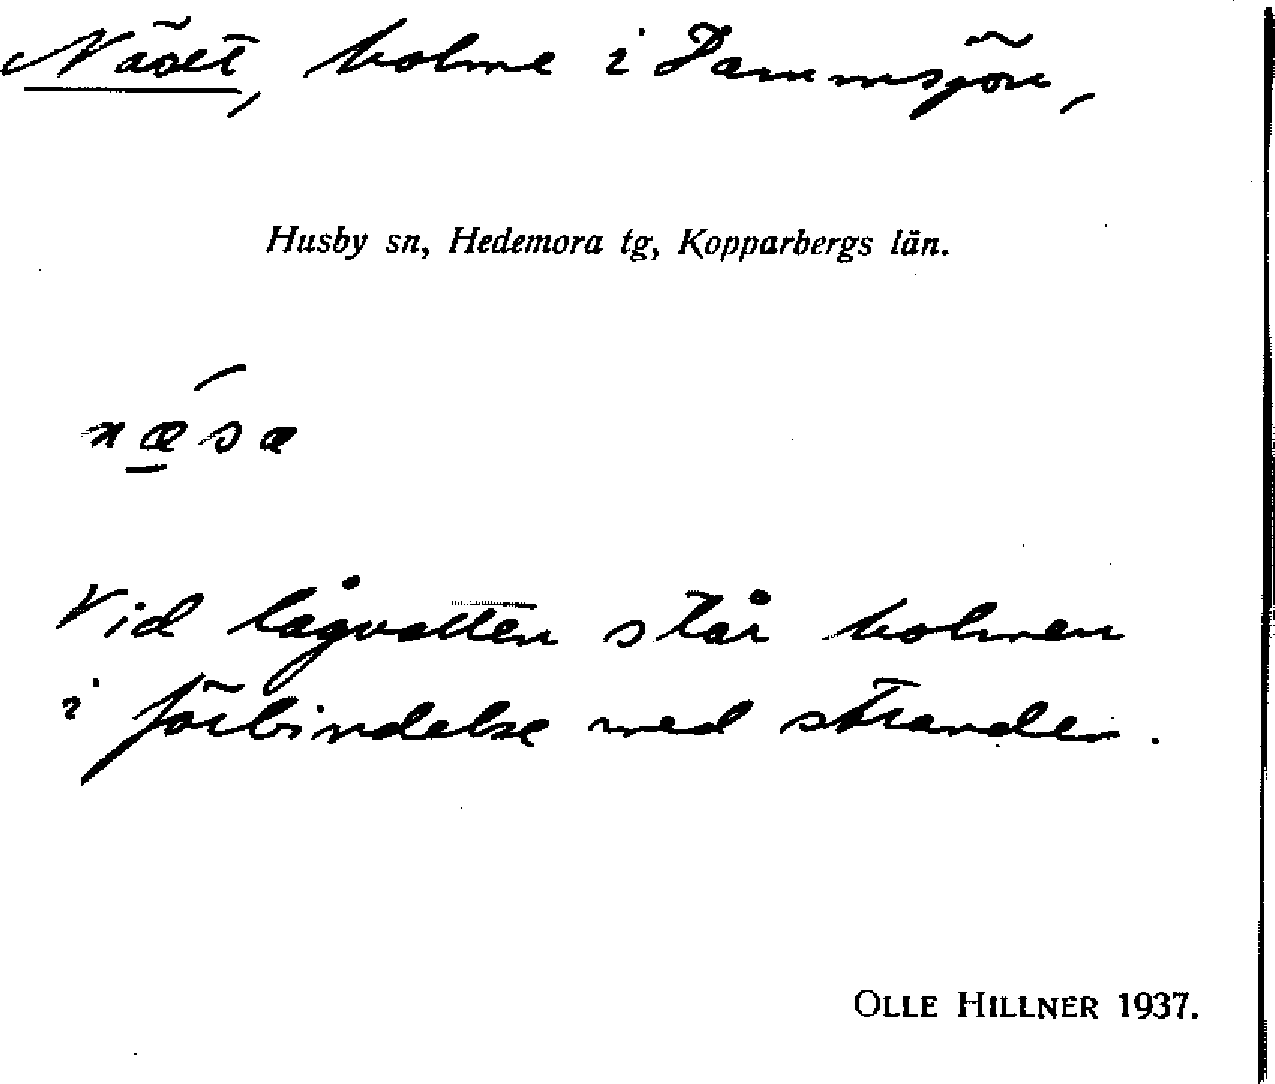 Näset, holme i Dammsjön,
Husby sn, Hedemora tg, Kopparbergs län.
nǽ̱sæ
Vid lågvatten står holmen
i förbindelse med stranden.
OLLE HILLNER 1937.